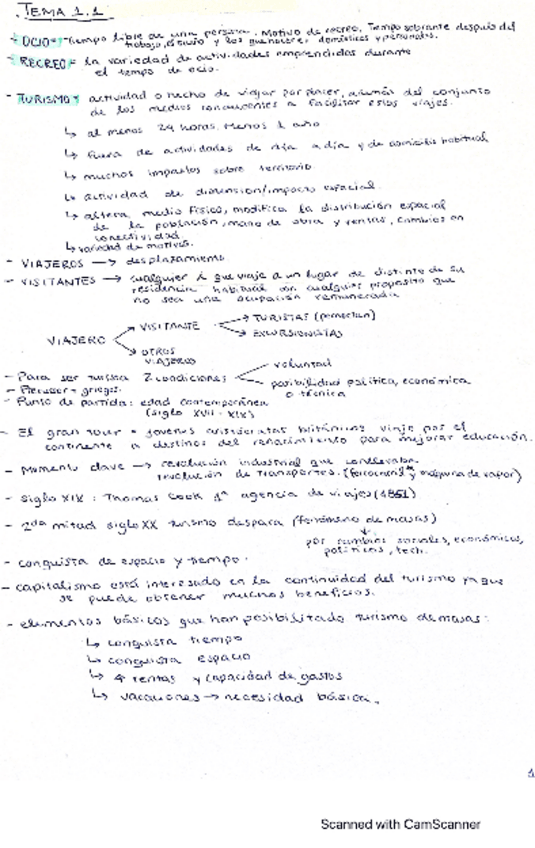 TEMA 1.1
- OCIO = Tiempo libre de una persona. Motivo de recreo. Tiempo sobrante después del
trabajo, estudio y los quehaceres domésticos y personales.
- RECREO = la variedad de actividades emprendidas durante
el tiempo de ocio.
- TURISMO = actividad o hecho de viajar por placer, además del conjunto
de los medios conducentes a facilitar estos viajes.
↳ al menos 24 horas. Menos 1 año
↳ fuera de actividades de día a día y de domicilio habitual
↳ muchos impactos sobre territorio.
↳ actividad de dimensión/impacto espacial.
↳ altera medio físico, modifica la distribución espacial
de la población, mano de obra y rentas, cambios en
conectividad.
↳ variedad de motivos.
- VIAJEROS → desplazamiento.
- VISITANTES → cualquier que viaje a un lugar de distinto de su
residencia habitual con cualquier propósito que
no sea una ocupación remunerada
VIAJERO
VISITANTE → TURISTAS (pernoctan)
→ EXCURSIONISTAS
OTROS
VIAJEROS
- Para ser turista 2 condiciones
voluntad
posibilidad política, económica
o técnica
griegos.
- Punto de partida: edad contemporánea
(siglo XVII - XIX)
- El gran tour = jóvenes aristócratas británicos viaje por el
continente a destinos del renacimiento para mejorar educación.
- Momento clave → revolución industrial que conllevaba
revolución de transportes. (ferrocarril y máquina de vapor)
- Siglo XIX: Thomas Cook 1ª agencia de viajes (1851)
- 2da mitad siglo XX turismo despara (fenómeno de masas)
↓
por cambios sociales, económicos,
políticos, tech.
- conquista de espacio y tiempo.
- capitalismo está interesado en la continuidad del turismo ya que
se puede obtener muchos beneficios.
- elementos básicos que han posibilitado turismo de masas:
↳ conquista tiempo
↳ conquista espacio
↳ rentas y capacidad de gastos
↳ vacaciones → necesidad básica.
1
Scanned with CamScanner